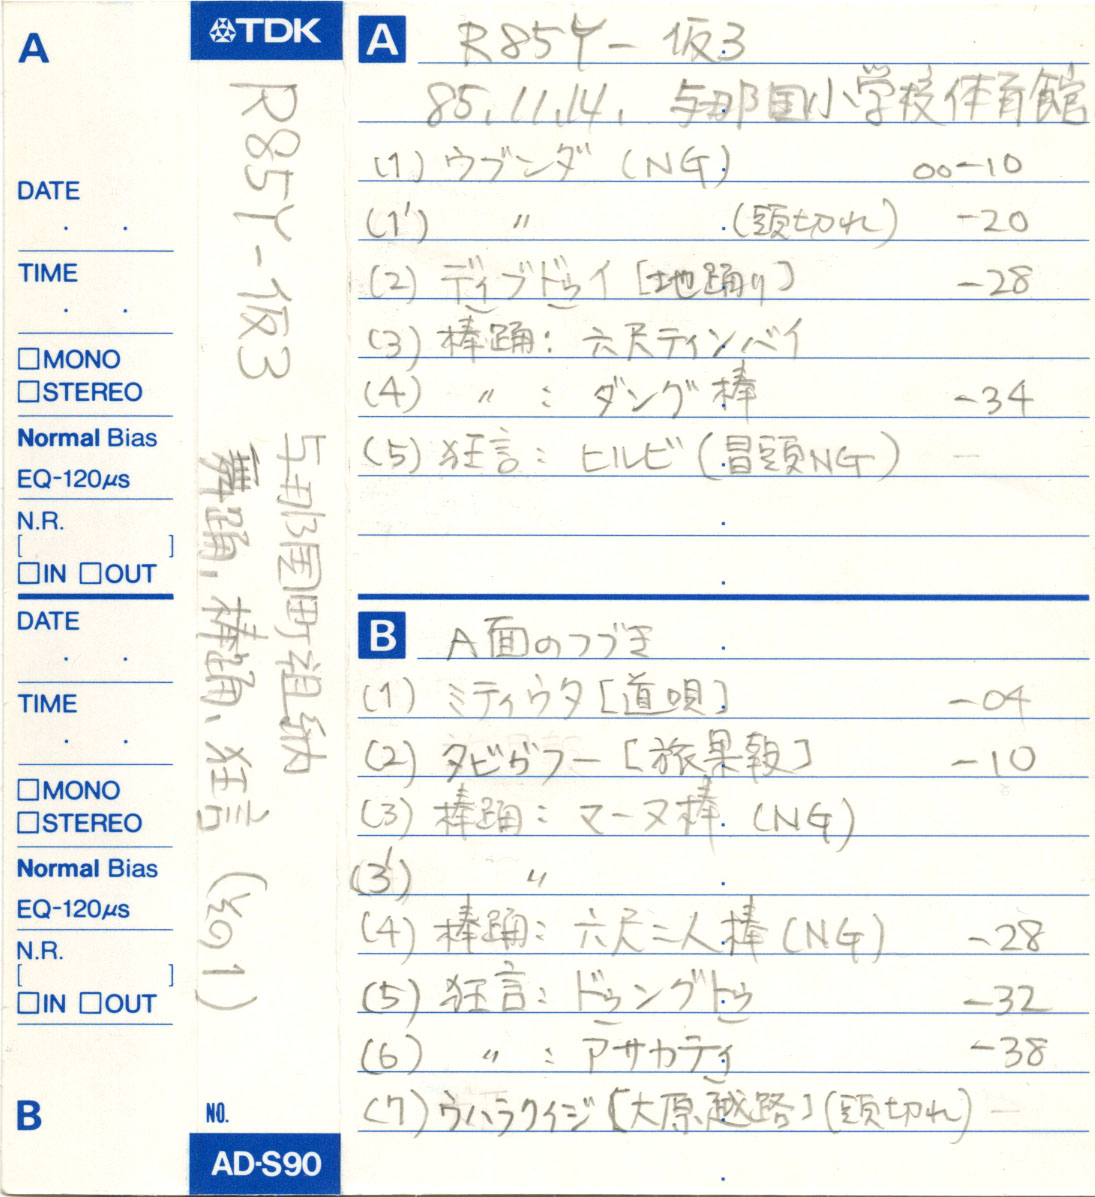 A
DATE
. .
TIME
. .
□MONO
□STEREO
Normal Bias
EQ-120μs
N.R.
[ ]
□IN □OUT
DATE
. .
TIME
. .
□MONO
□STEREO
Normal Bias
EQ-120μs
N.R.
[ ]
□IN □OUT
B
TDK
R85Y-仮3
与那国町祖納
舞踊、棒踊、狂言 (その1)
NO.
AD-S90
A R85Y-仮3
85.11.14. 与那国小学校体育館
(1) ウブンダ (NG) 00-10
(1') 〃 (頭切れ) -20
(2) ディブドゥイ [地踊り] -28
(3) 棒踊: 六尺ティンバイ
(4) 〃 : ダング棒 -34
(5) 狂言: ヒルビ (冒頭NG) -
B A面のつづき
(1) ミティウタ [道唄] -04
(2) タビガフー [旅果報] -10
(3) 棒踊: マーヌ棒 (NG)
(3') 〃
(4) 棒踊: 六尺二人棒 (NG) -28
(5) 狂言: ドゥングトゥ -32
(6) 〃 : アサカディ -38
(7) ウハラクイジ [大原越路] (頭切れ) -